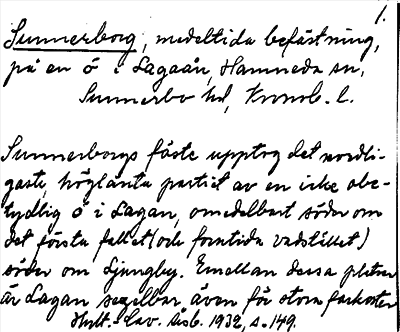 1.
Sunnerborg, medeltida befästning,
på en ö i Lagaån, Hamneda sn,
Sunnerbo hd, Kronob. l.
Sunnerborgs fäste upptog det nordli-
gaste, höglänta partiet av en icke obe-
tydlig ö i Lagan, omedelbart söder om
det första fallet (och forntida vadstället)
söder om Ljungby. Emellan dessa platser
är Lagan segelbar även för stora farkoster
Hylt.-Cav. Årsb. 1932, s. 149.